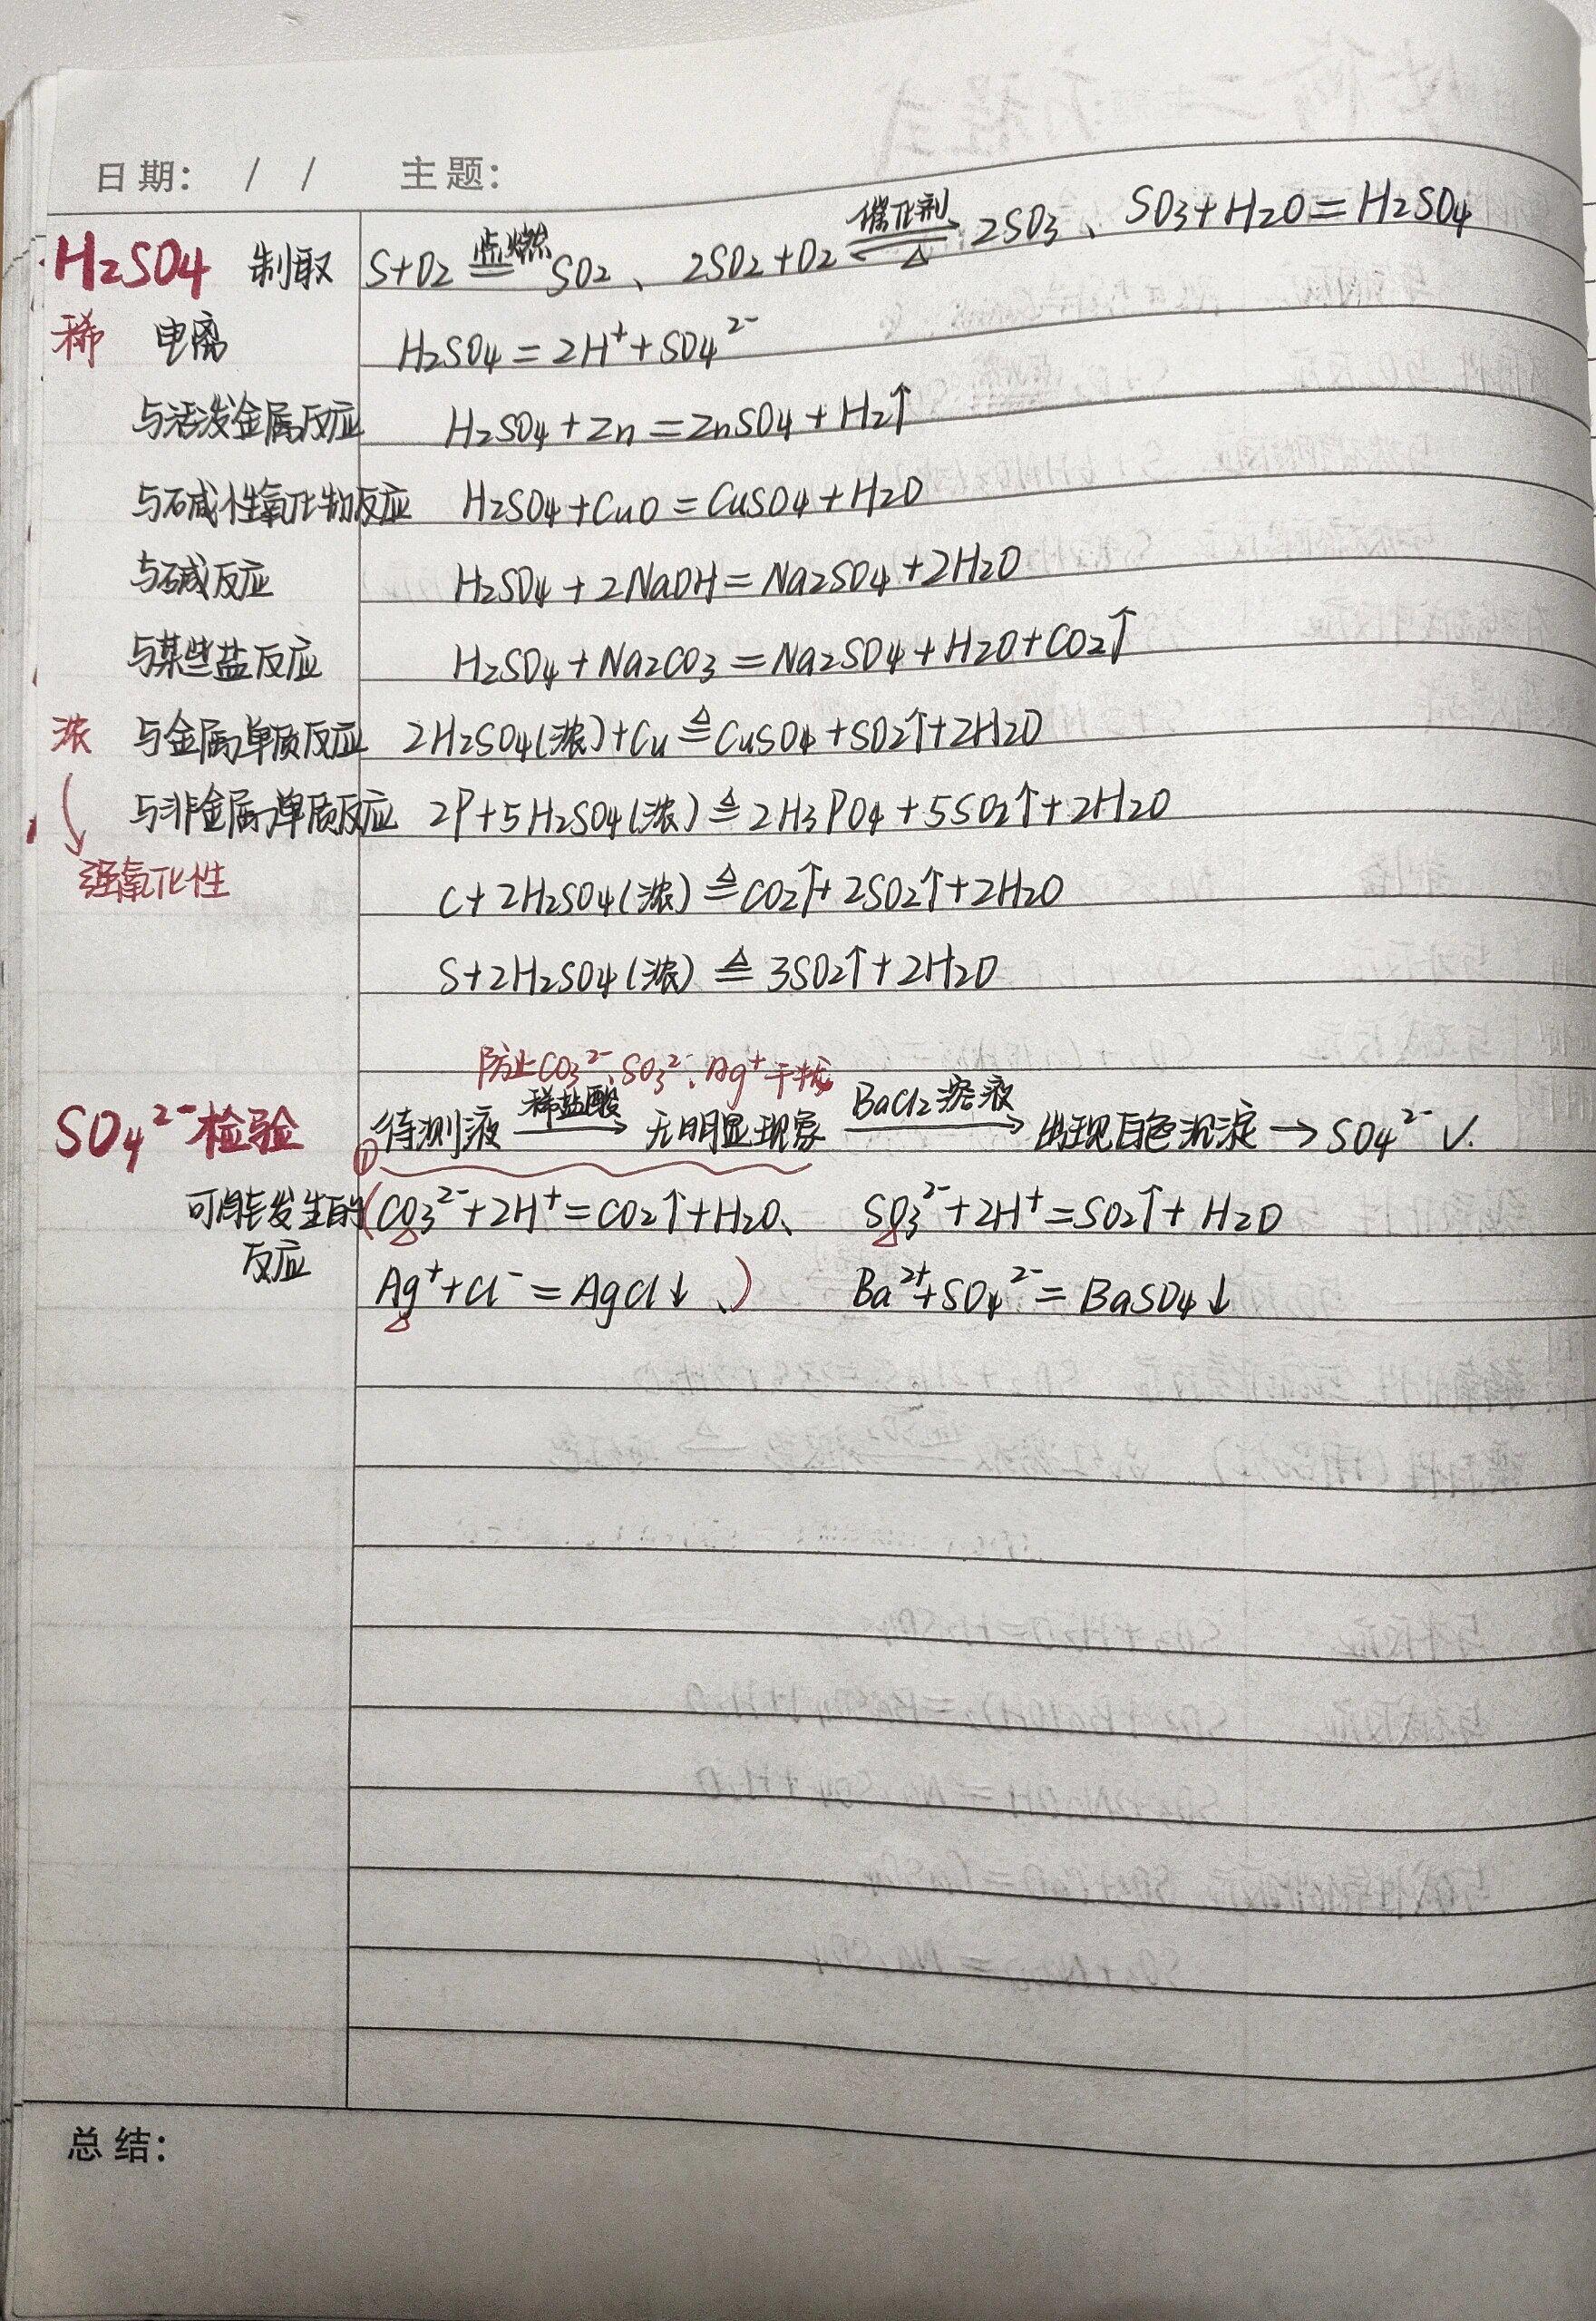 日期: / / 主题:
H₂SO₄ 制取 S+O₂ 点燃= SO₂、2SO₂+O₂ 催化剂⇌△ 2SO₃、SO₃+H₂O=H₂SO₄
稀 电离 H₂SO₄=2H⁺+SO₄²⁻
与活泼金属反应 H₂SO₄+Zn=ZnSO₄+H₂↑
与碱性氧化物反应 H₂SO₄+CuO=CuSO₄+H₂O
与碱反应 H₂SO₄+2NaOH=Na₂SO₄+2H₂O
与某些盐反应 H₂SO₄+Na₂CO₃=Na₂SO₄+H₂O+CO₂↑
浓 与金属单质反应 2H₂SO₄(浓)+Cu △= CuSO₄+SO₂↑+2H₂O
与非金属单质反应 2P+5H₂SO₄(浓) △= 2H₃PO₄+5SO₂↑+2H₂O
强氧化性 C+2H₂SO₄(浓) △= CO₂↑+2SO₂↑+2H₂O
S+2H₂SO₄(浓) △= 3SO₂↑+2H₂O
防止CO₃²⁻、SO₃²⁻、Ag⁺干扰
SO₄²⁻检验 待测液 稀盐酸→ 无明显现象 BaCl₂溶液→ 出现白色沉淀→SO₄²⁻ √.
①
可能发生的 (CO₃²⁻+2H⁺=CO₂↑+H₂O、 SO₃²⁻+2H⁺=SO₂↑+H₂O
反应 Ag⁺+Cl⁻=AgCl↓、) Ba²⁺+SO₄²⁻=BaSO₄↓
总结: